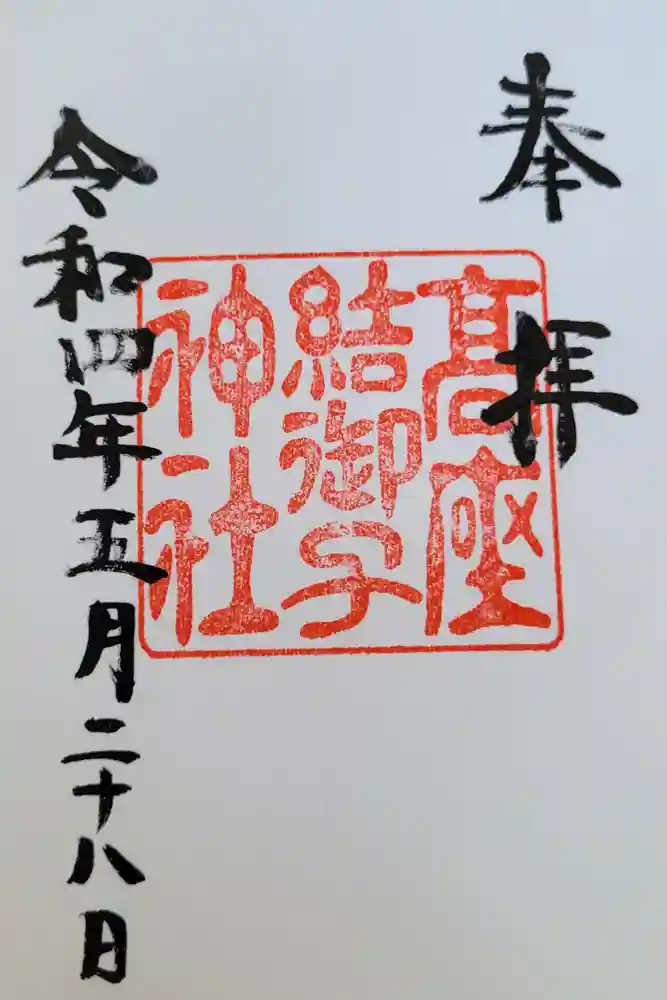 奉拝
髙座
結御子
神社
令和四年五月二十八日